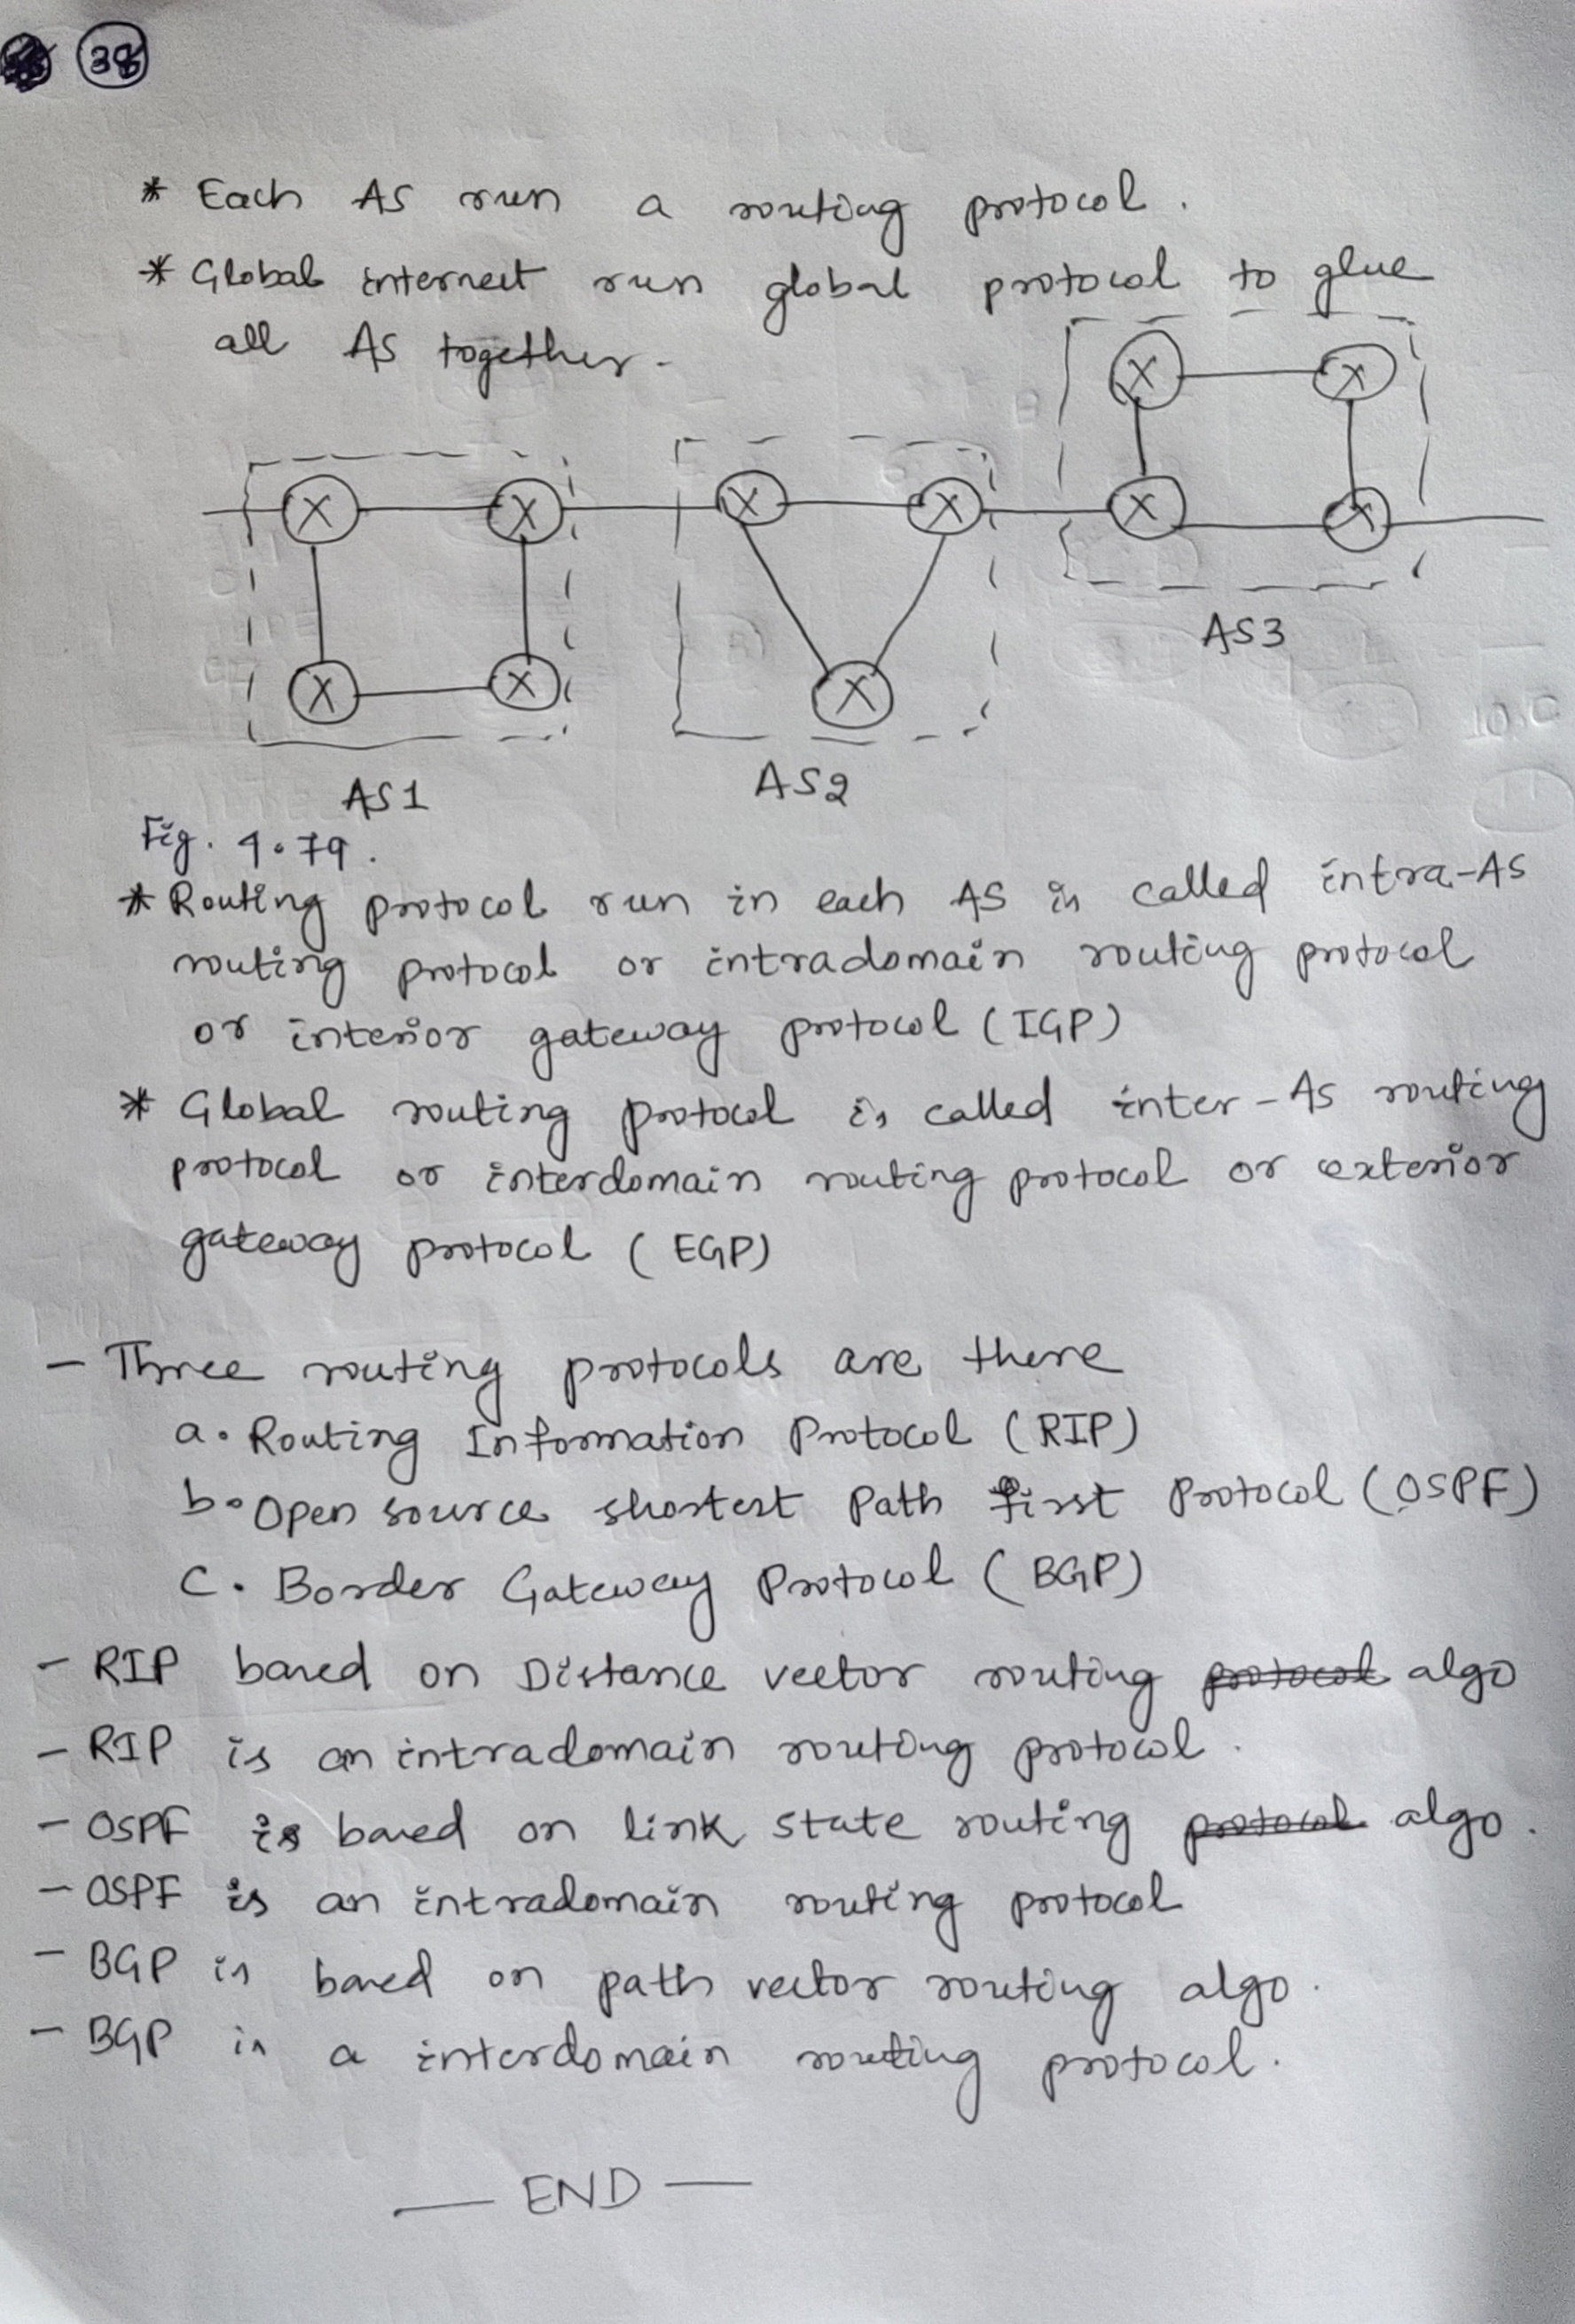 38
* Each AS run a routing protocol.
* Global internet run global protocol to glue
all AS together.
X X X X X X X
X X X X
AS3
AS1
AS2
Fig. 4.79.
* Routing protocol run in each AS is called intra-AS
routing protocol or intradomain routing protocol
or interior gateway protocol (IGP)
* Global routing protocol is called inter-AS routing
protocol or interdomain routing protocol or exterior
gateway protocol (EGP)
- Three routing protocols are there
a. Routing Information Protocol (RIP)
b. Open source shortest Path first Protocol (OSPF)
C. Border Gateway Protocol (BGP)
- RIP based on Distance vector routing protocol algo
- RIP is an intradomain routing protocol.
- OSPF is based on link state routing protocol algo.
- OSPF is an intradomain routing protocol
- BGP is based on path vector routing algo.
- BGP is a interdomain routing protocol.
— END —